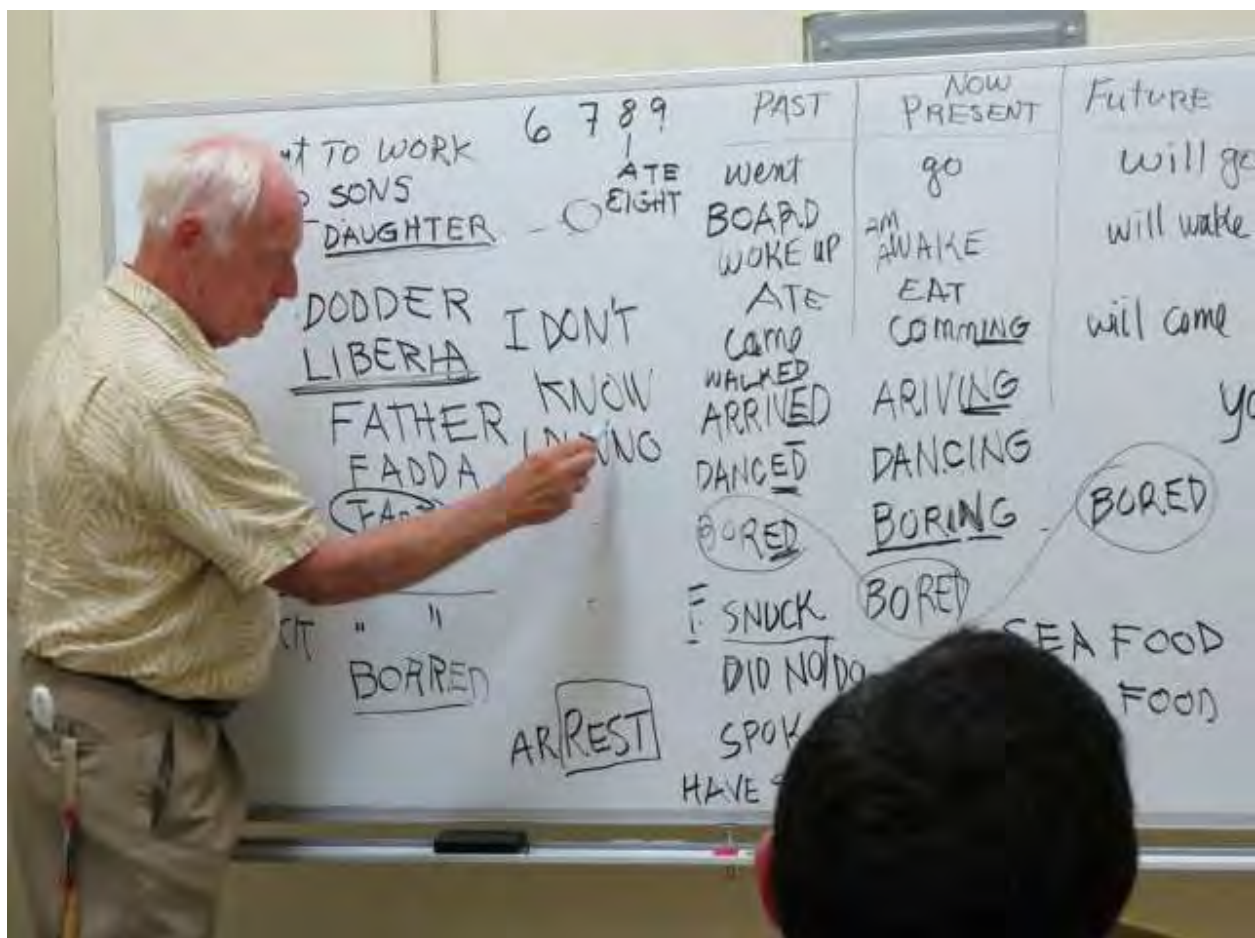 TO WORK
SONS
DAUGHTER
DODDER
LIBERIA
FATHER
FADDA
" "
BOARRED
6 7 8 9
ATE
EIGHT
I DON'T
KNOW
ARREST
PAST
went
BOARD
WOKE UP
ATE
came
WALKED
ARRIVED
DANCED
BORED
SNUCK
DID NOT DO
HAVE
NOW
PRESENT
go
AM
AWAKE
EAT
COMMING
ARIVING
DANCING
BORING
BORED
Future
will go
will wake
will come
BORED
SEA FOOD
FOOD